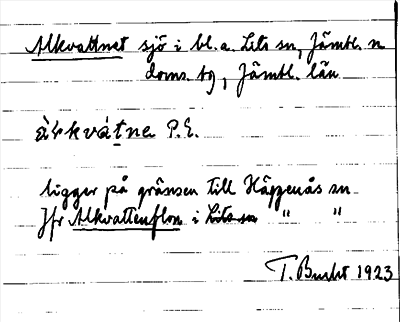 Alkvattnet sjö i bl.a. Lits sn, Jämtl. n
doms. tg, Jämtl. län
P.E.
ligger på gränsen till Häggenås sn
Jfr Alkvattenflon i Lits sn " "
T. Bucht 1923